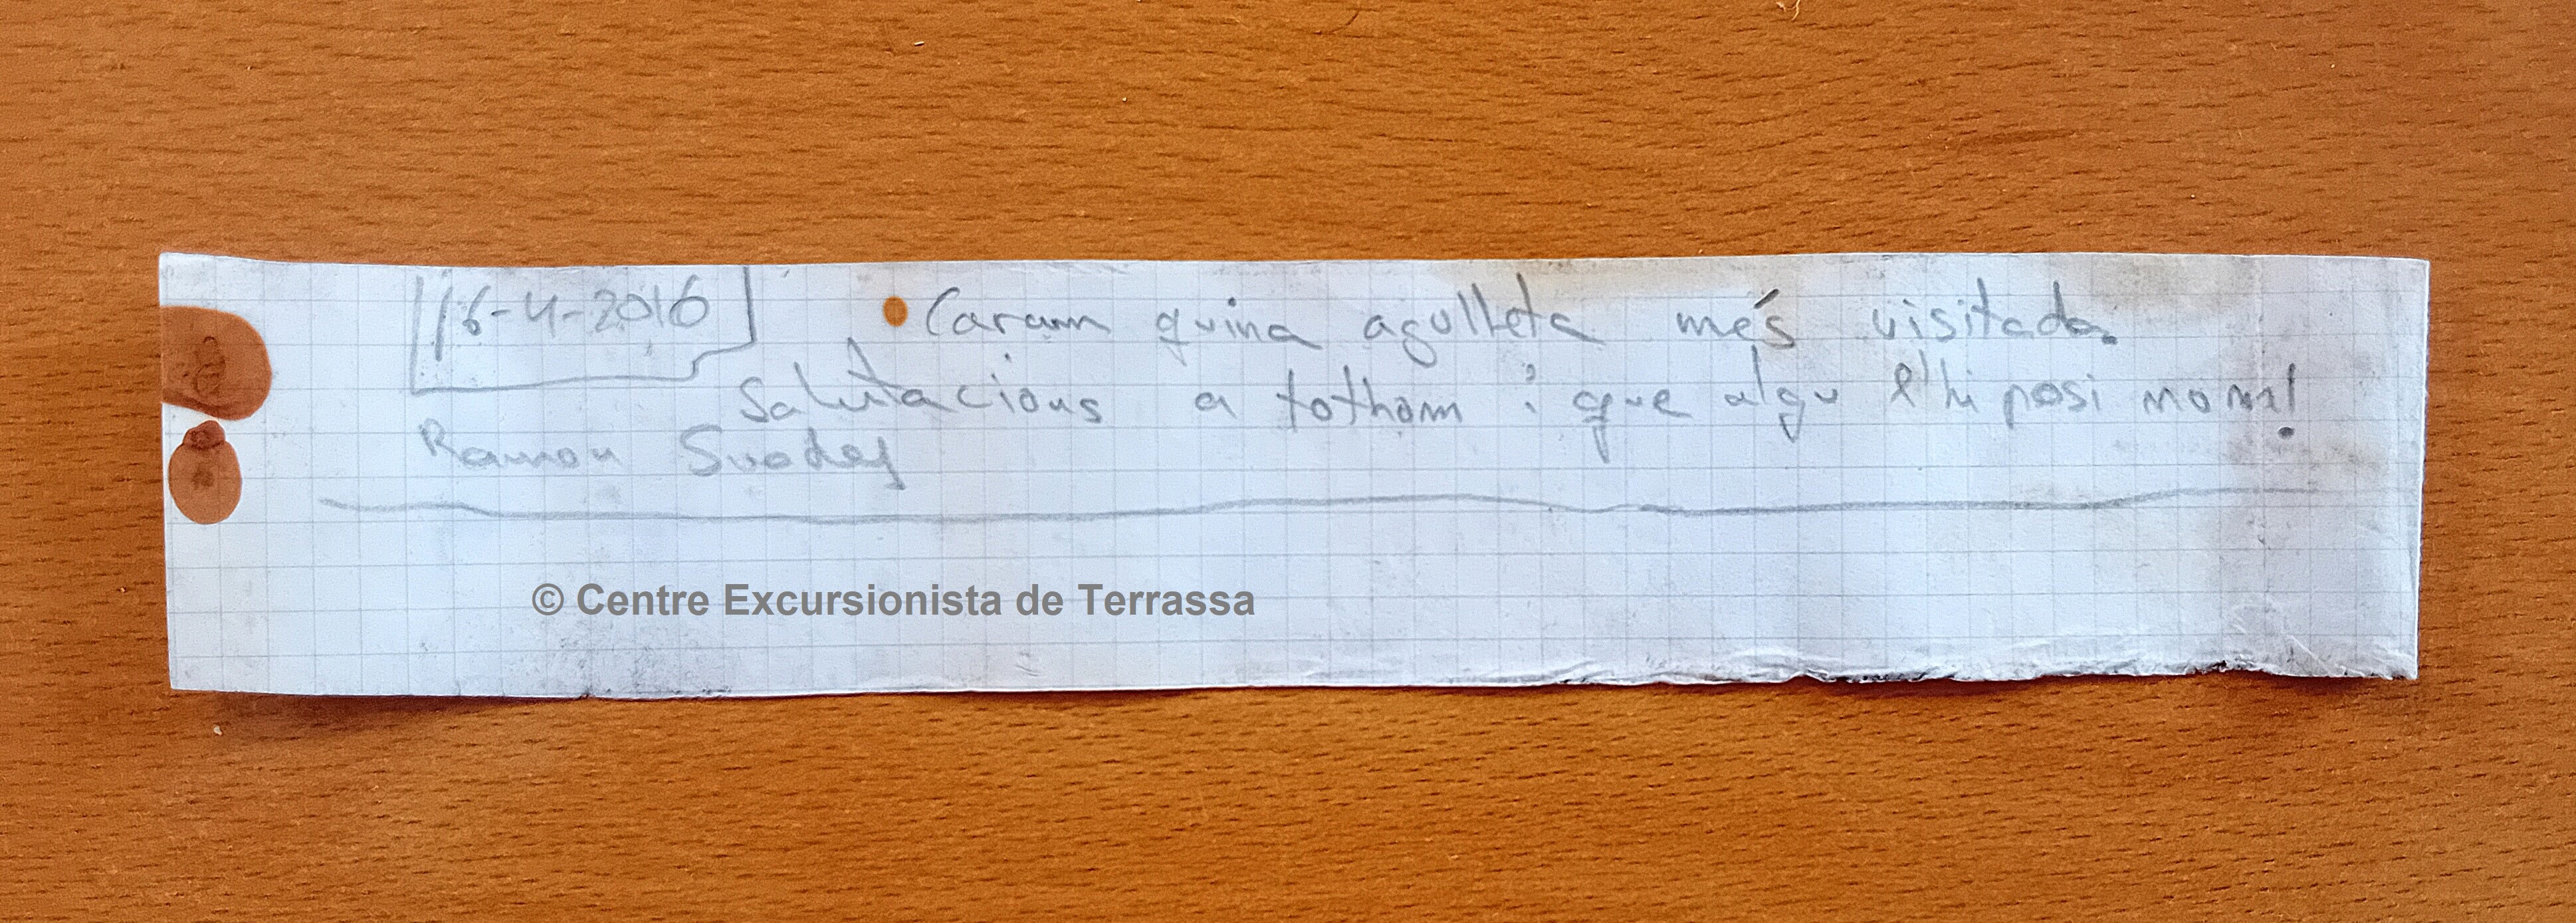 16-4-2016 Caram quina agulleta més visitada.
Salutacions a tothom i que algu l'hi posi nom!
Ramon
© Centre Excursionista de Terrassa